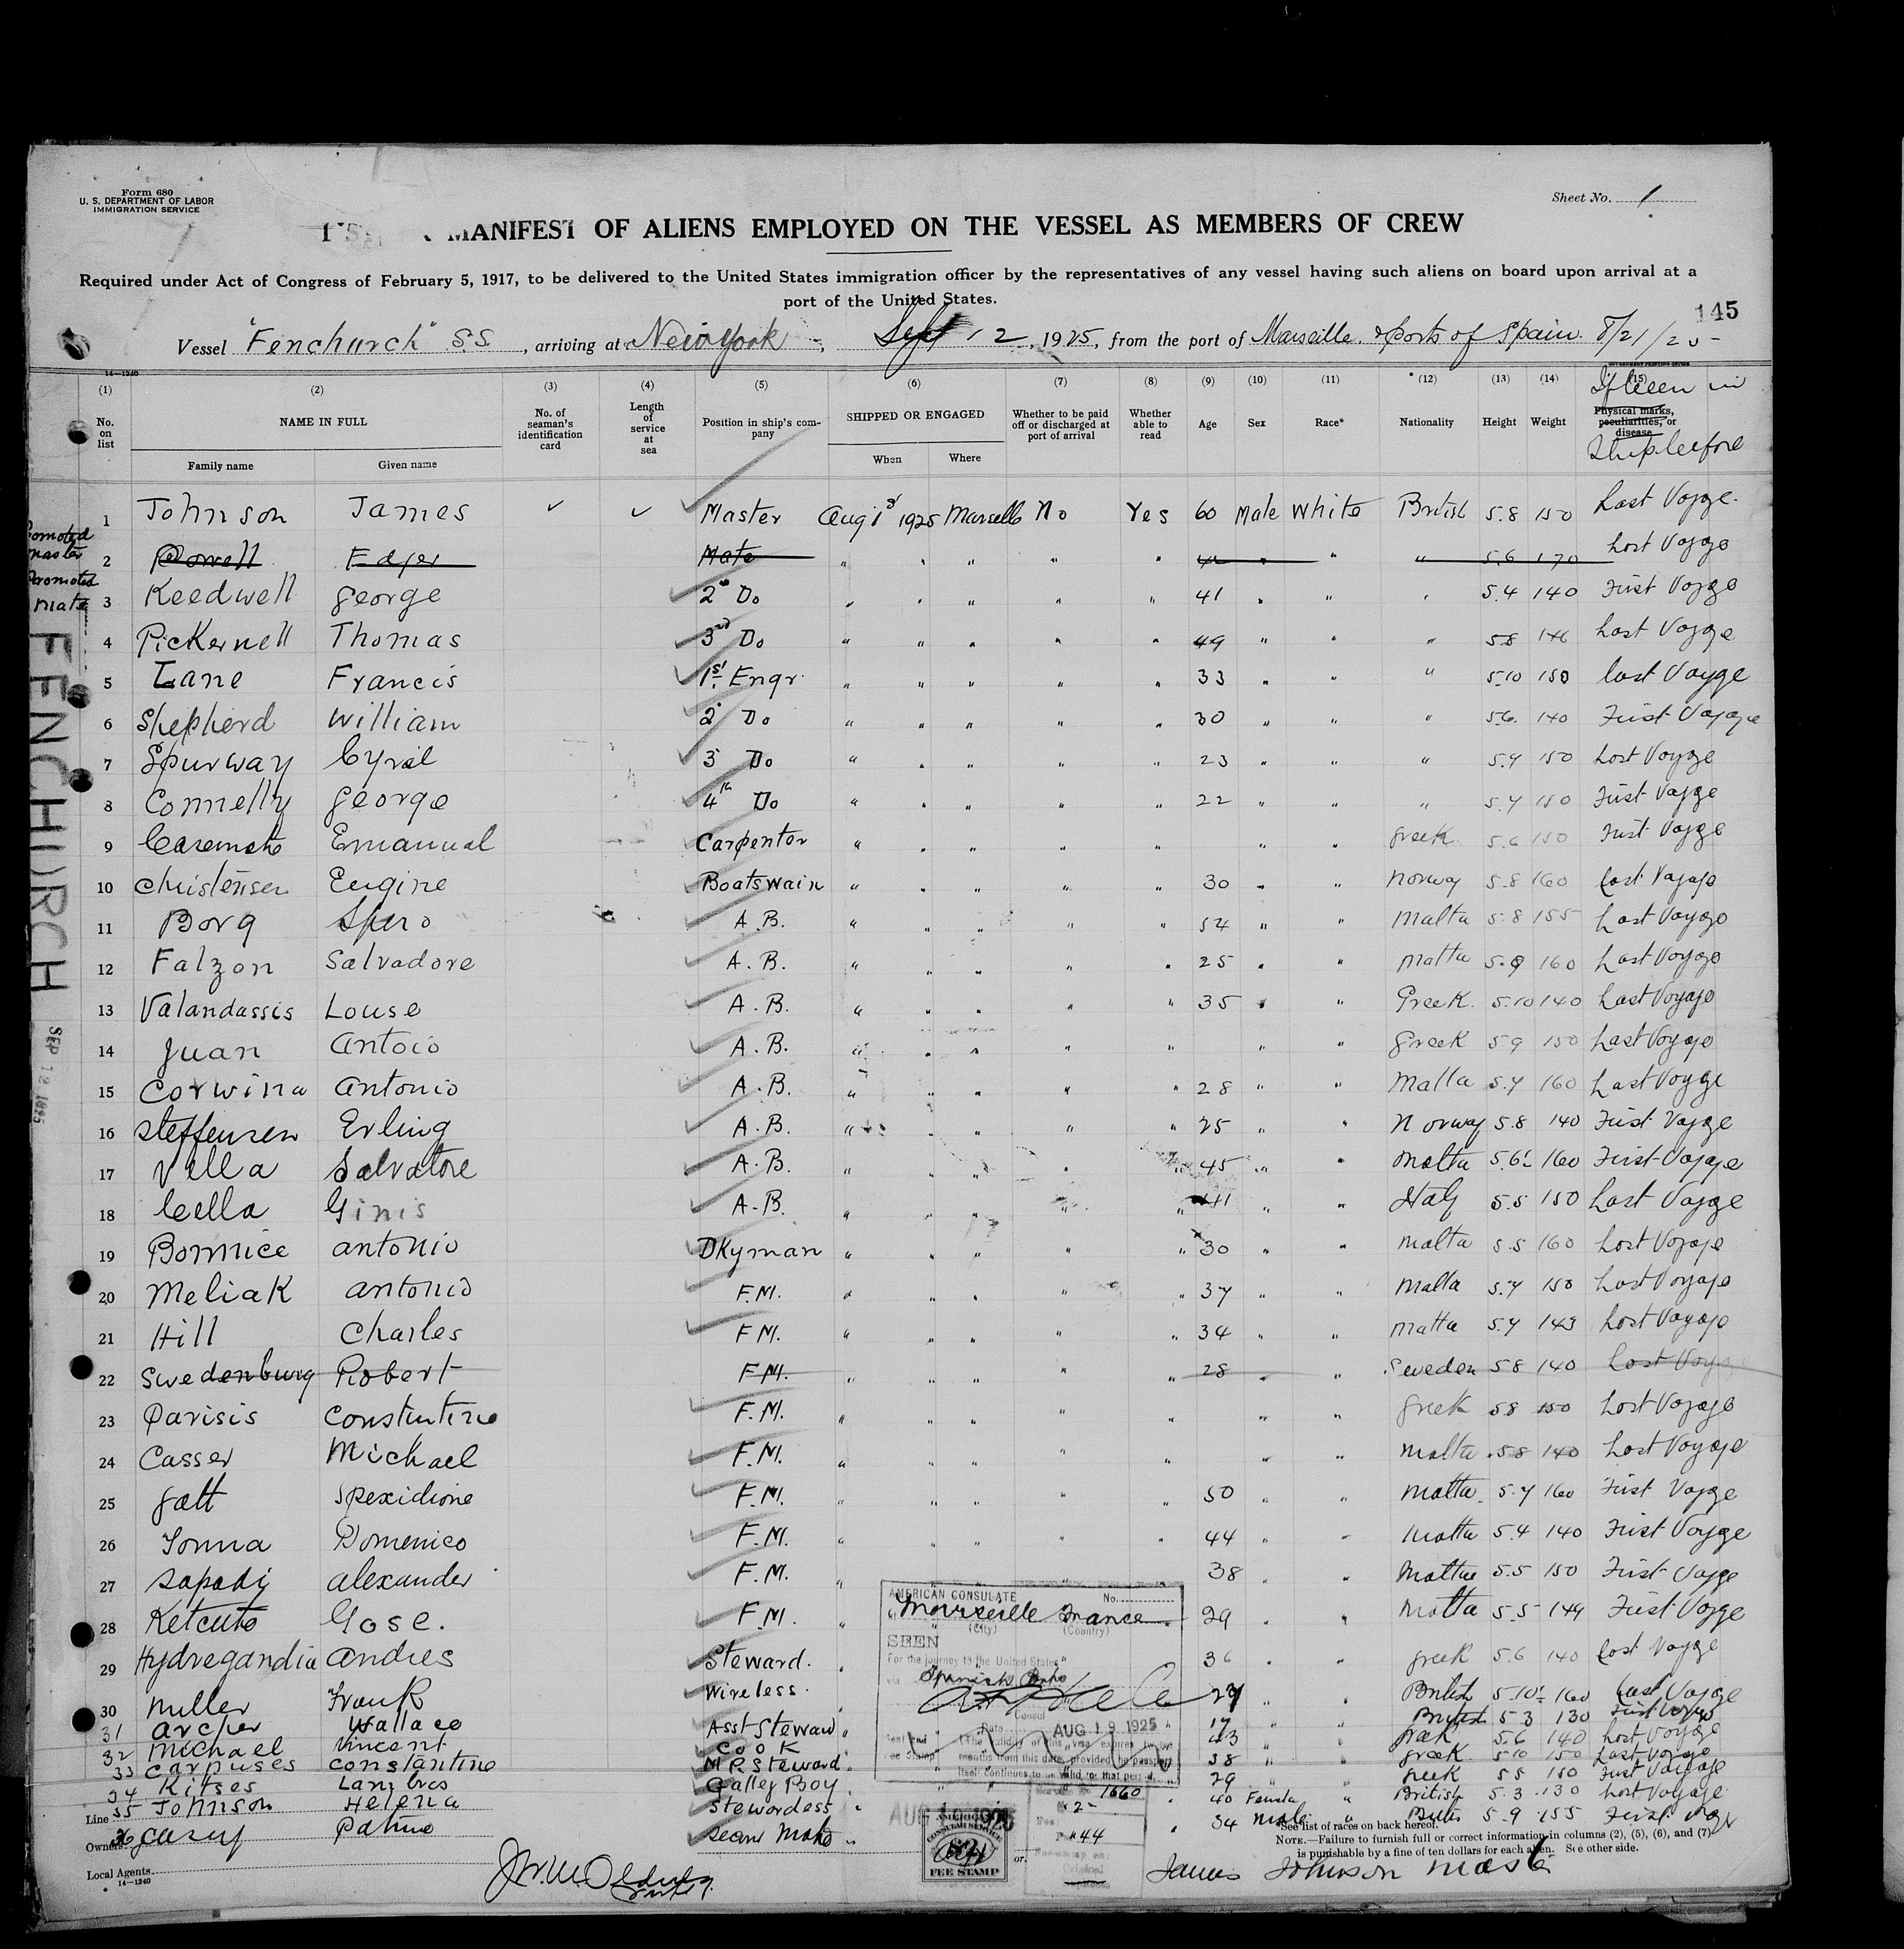 Form 680
U. S. DEPARTMENT OF LABOR
IMMIGRATION SERVICE
Sheet No. 1
MANIFEST OF ALIENS EMPLOYED ON THE VESSEL AS MEMBERS OF CREW
Required under Act of Congress of February 5, 1917, to be delivered to the United States immigration officer by the representatives of any vessel having such aliens on board upon arrival at a
port of the United States.
145
Vessel "Fenchurch" S.S., arriving at New York, Sept 12, 1925, from the port of Marseille. & Ports of Spain. 8/21/25
14—1240
(1) (2) (3) (4) (5) (6) (7) (8) (9) (10) (11) (12) (13) (14) (15)
No. on list
NAME IN FULL
Family name Given name
No. of seaman's identification card
Length of service at sea
Position in ship's company
SHIPPED OR ENGAGED
When Where
Whether to be paid off or discharged at port of arrival
Whether able to read
Age Sex Race* Nationality Height Weight
Physical marks, peculiarities, or disease
If been in Ship before
1 Johnson James Master Aug 1st 1925 Marseille No Yes 60 Male White British 5.8 150 Last Voyge.
Promoted master
2 Powell Edger Mate " " " " " " " 5.6 170 Last Voyge
Promoted Mate
3 Keedwell George 2nd Do " " " " " 41 " " " 5.4 140 First Voyge
4 Pickernell Thomas 3rd Do " " " " " 49 " " " 5.8 146 Last Voyge
5 Lane Francis 1st Engr. " " " " " 33 " " " 5.10 150 Last Voyge
6 Shepherd William 2 Do " " " " " 30 " " " 5.6. 140 First Voyage
7 Spurway Cyril 3 Do " " " " " 23 " " " 5.7 150 Last Voyge
8 Connelly George 4th Do " " " " " 22 " " " 5.7 150 First Voyge
9 Casemate Emanual Carpenter " " " " " " " Greek 5.6 150 First Voyge
10 Christensen Eugine Boatswain " " " " " 30 " " Norway 5.8 160 Last Voyage
11 Borg Spero A.B. " " " " " 54 " " Malta 5.8 155 Last Voyage
12 Falzon Salvadore A.B. " " " " " 25 " " Malta 5.9 160 Last Voyage
13 Valandassis Louse A.B. " " " " " 35 " " Greek. 5.10 140 Last Voyage
14 Juan Antoio A.B. " " " " " " " Greek 5.9 150 Last Voyage
15 Corwina Antonio A.B. " " " " " 28 " " Malta 5.7 160 Last Voyge
16 Steffensen Erling A.B. " " " " " 25 " " Norway 5.8 140 First Voyge
17 Vella Salvatore A.B. " " " " " 45 " " Malta 5.6½ 160 First Voyage
18 Cella Ginis A.B. " " " " " 41 " " Italy 5.5 150 Last Voyge
19 Bonnice Antonio DKyman " " " " " 30 " " Malta 5.5 160 Last Voyage
20 Meliak Antonio F.M. " " " " " 37 " " Malta 5.7 150 Last Voyage
21 Hill Charles F.M. " " " " " 34 " " Malta 5.7 143 Last Voyage
22 Swedenburg Robert F.M. " " " " " 28 " " Sweden 5.8 140 Last Voy
23 Parisis Constintine F.M. " " " " " " " Greek 5.8 150 Last Voyage
24 Casser Michael F.M. " " " " " " " Malta 5.8 140 Last Voyage
25 Galt Spexidione F.M. " " " " " 50 " " Malta 5.7 160 First Voyge
26 Tonna Domenico F.M. " " " " " 44 " " Malta 5.4 140 First Voyge
27 Sapady Alexander F.M. " " 38 " " Malta 5.5 150 First Voyge
28 Ketcuto Gose. F.M. " 29 " " Malta 5.5 149 First Voyge
29 Hydregandia Andres Steward. " 36 " " Greek 5.6 140 Last Voyge
30 Miller Frank Wireless. " 27 " " British 5.10½ 160 Last Voyage
31 Archer Wallace Asst Steward " 17 " " British 5.3 130 First Voyge
32 Michael Vincent Cook " 43 " " Greek 5.6 140 Last Voyage
33 Carpuses Constantine M.R. Steward " 38 " " Greek. 5.10 150 Last Voyage
34 Kitses Lambros Galley Boy " 29 " " Greek 5.5 150 First Voyage
35 Johnson Helena Stewardess " 40 Female " British 5.3 130 Last Voyage
36 Casey " 34 Male " 5.9 155 First
FENCHURCH
SEP 12 1925
AMERICAN CONSULATE No.
at Marseille France
(City) (Country)
SEEN
For the journey to the United States
via Spanish Ports
Consul
Date AUG 19 1925
(The validity of this Visa expires twelve
months from this date, provided the passport
itself continues to be valid for that period.
AUG 19 1925
AMERICAN
CONSULAR SERVICE
$2
FEE STAMP
1660
44
Original
Line
Owners
Local Agents
14—1240
or
*See list of races on back hereof.
NOTE.—Failure to furnish full or correct information in columns (2), (5), (6), and (7)
is punishable by a fine of ten dollars for each alien. See other side.
James Johnson Master